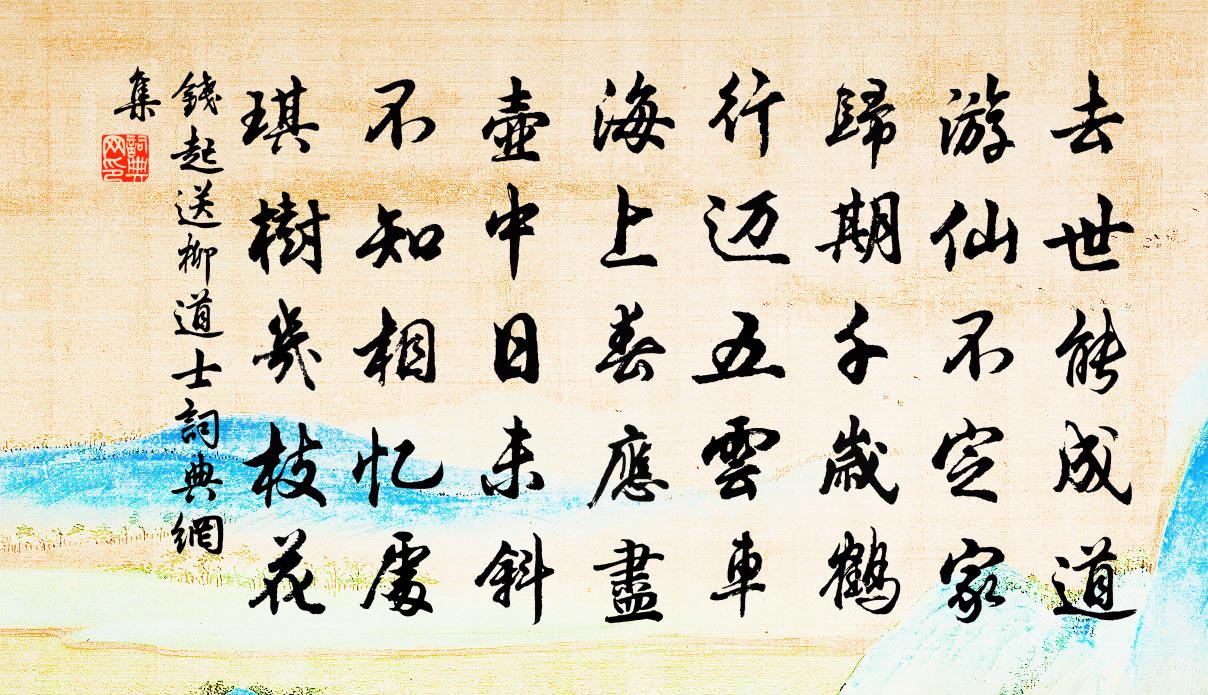 去世能成道
游仙不定家
歸期千歳鶴
行迈五雲車
海上春應盡
壺中日未斜
不知相忆處
琪樹幾枝花
錢起送柳道士詞典網
集
詞典網印